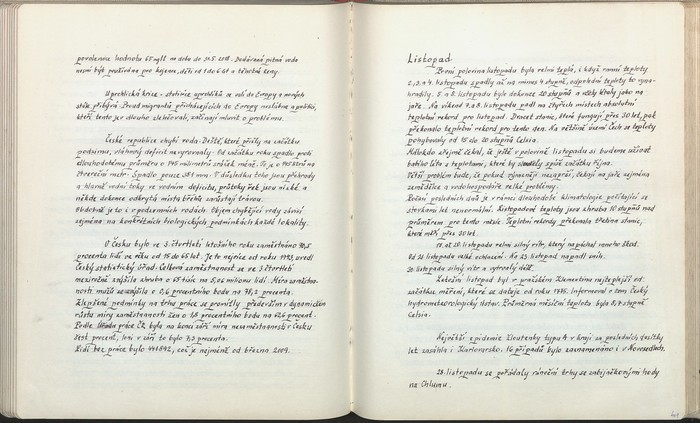 povolenou hodnotu 65 mg/l na dobu do 31.5. 2018. Dodávaná pitná voda
nesmí být používána pro kojence, děti od 1 do 6 let a těhotné ženy.
Uprchlická krize - statisíce uprchlíků se valí do Evropy a nových
stále přibývá. Proud migrantů přicházejících do Evropy neslábne a politici,
kteří tento jev dlouho zlehčovali, začínají mluvit o problému.
České republice chybí voda. Deště, které přišly na začátku
podzimu, vláhový deficit nevyrovnaly. Od začátku roku spadlo proti
dlouhodobému průměru o 145 milimetrů srážek méně. To je o 145 litrů na
čtvereční metr. Spadlo pouze 381 mm. V důsledku toho jsou přehrady
a hlavně vodní toky ve vodním deficitu, průtoky řek jsou nízké a
někde dokonce odkrytá místa břehů zarůstají trávou.
Obdobně je to i v podzemních vodách. Objem chybějící vody závisí
zejména na konkrétních biologických podmínkách každé lokality.
V Česku bylo ve 3. čtvrtletí letošního roku zaměstnáno 70,5
procenta lidí ve věku od 15 do 65 let. Je to nejvíce od roku 1993, uvedl
Český statistický úřad. Celková zaměstnanost se ve 3. čtvrtletí
meziročně zvýšila zhruba o 65 tisíc na 5,06 milionu lidí. Míra zaměstna-
nosti mužů se zvýšila o 0,6 procentního bodu na 78,2 procenta.
Zlepšené podmínky na trhu práce se promítly především v dynamickém
růstu míry zaměstnanosti žen o 1,8 procentního bodu na 62,6 procent.
Podle Úřadu práce ČR byla na konci září míra nezaměstnanosti v Česku
šest procent, loni v září to bylo 7,3 procenta.
Lidí bez práce bylo 441 892, což je nejméně od března 2009.
Listopad
První polovina listopadu byla velmi teplá, i když ranní teploty
2., 3. a 4. listopadu spadly až na minus 4 stupně, odpolední teploty to vyna-
hradily. 5. a 6. listopadu bylo dokonce 20 stupňů a vody kvetly jako na
jaře. Na víkend 7. a 8. listopadu padl na čtyřech místech absolutní
teplotní rekord pro listopad. Dvacet stanic, které fungují přes 30 let, pak
překonalo teplotní rekord pro tento den. Na většině území Čech se teploty
pohybovaly od 15 do 20 stupňů Celsia.
Málokdo zřejmě čekal, že ještě v polovině listopadu si budeme užívat
babího léta s teplotami, které by seděly spíše začátku října.
Větší problém bude, že pokud výrazněji nezaprší, čekají na jaře zejména
zemědělce a vodohospodáře velké problémy.
Počasí posledních dnů je v rámci dlouhodobé klimatologie počítající se
stovkami let nenormální. Listopadové teploty jsou zhruba 10 stupňů nad
průměrem pro tento měsíc. Teplotní rekordy překonala třetina stanic,
které měří přes 30 let.
18. až 20. listopadu velmi silný vítr, který napáchal mnoho škod.
Od 21. listopadu velké ochlazení. Na 23. listopad napadl sníh.
30. listopadu silný vítr a vytrvalý déšť.
Letošní listopad byl v pražském Klementinu nejteplejší od
začátku měření, které se datuje od roku 1775. Informoval o tom Český
hydrometeorologický ústav. Průměrná měsíční teplota byla 8,4 stupně
Celsia.
Největší epidemie žloutenky typu A v kraji za posledních desítky
let zasáhla i Karlovarsko. 16 případů bylo zaznamenáno i v Novosedlech.
28. listopadu se pořádaly vánoční trhy se zabijačkovými hody
na Chlumu.